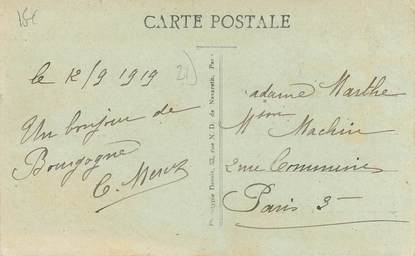 15€
CARTE POSTALE
le 12/9 1919
21)
Un bonjour de
Bourgogne
Phototypie Daniel, 52, rue N. D. de Nazareth, Par
adame Marthe
Mson Machin
2 rue Commines
Paris 3